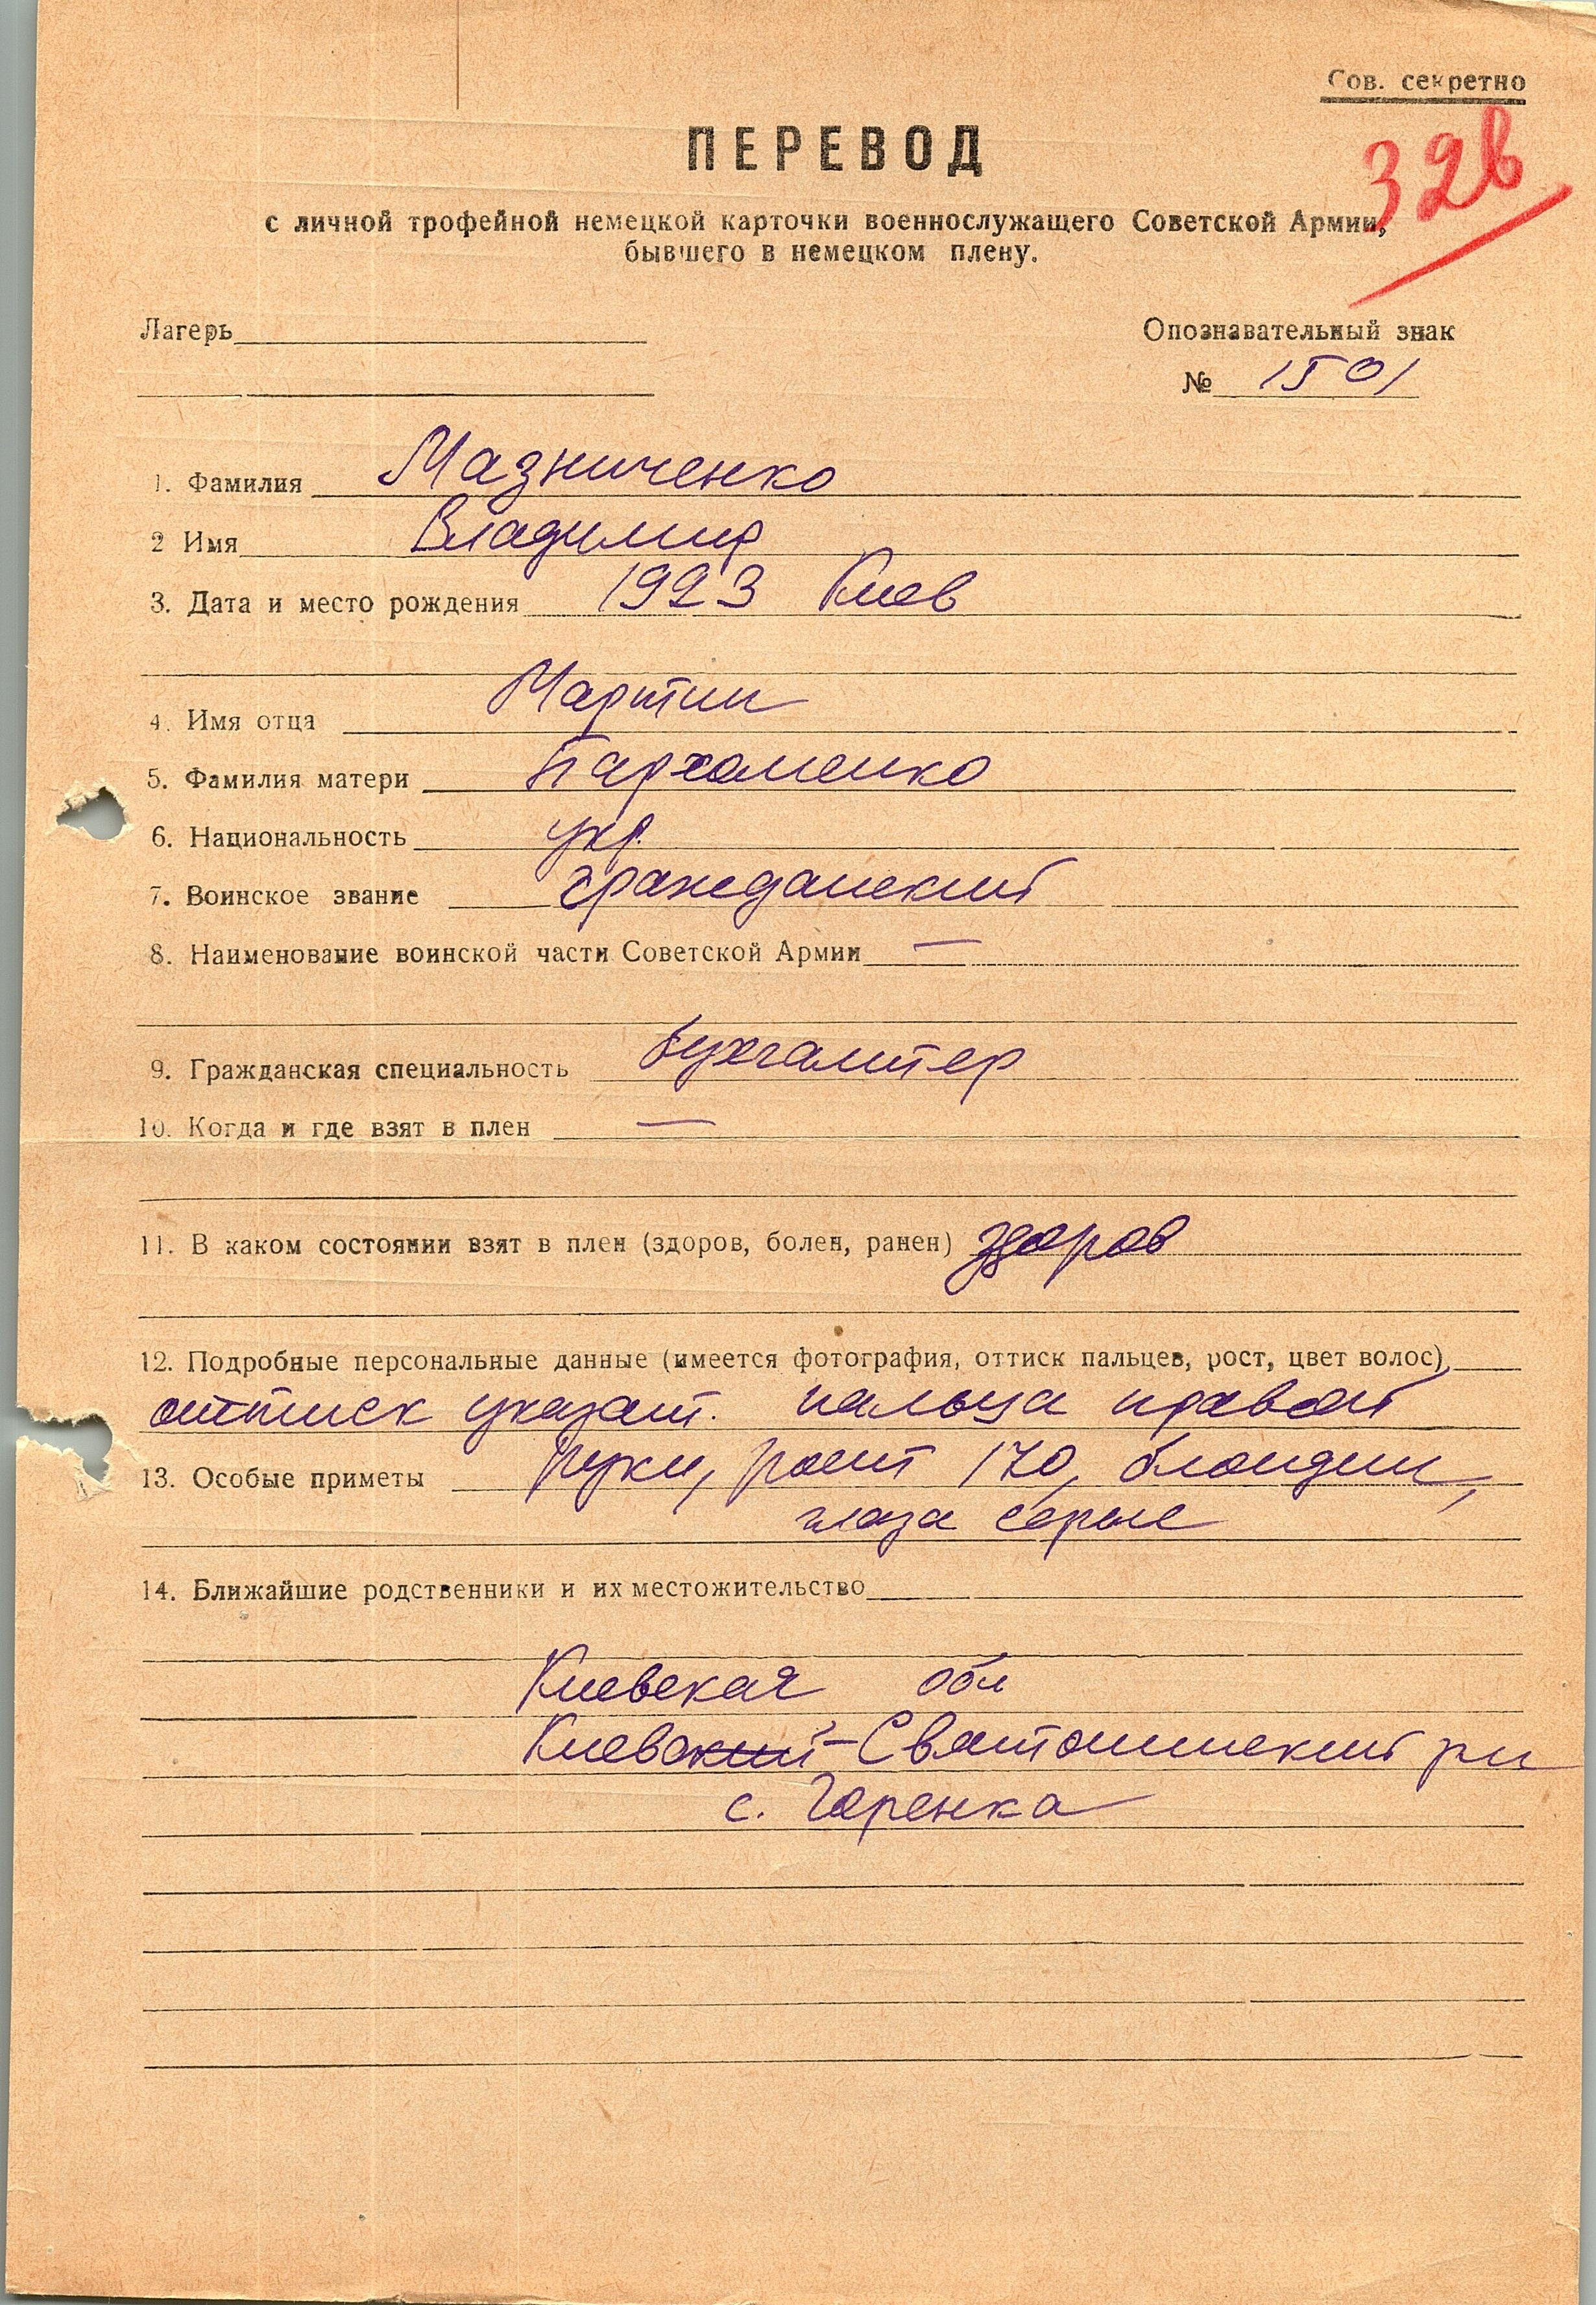 Сов. секретно
32в
ПЕРЕВОД
с личной трофейной немецкой карточки военнослужащего Советской Армии,
бывшего в немецком плену.
Лагерь
Опознавательный знак
№ 1501
1. Фамилия Мазниченко
2 Имя Владимир
3. Дата и место рождения 1923 Киев
4. Имя отца Мартин
5. Фамилия матери Пархоменко
6. Национальность укр.
7. Воинское звание гражданский
8. Наименование воинской части Советской Армии —
9. Гражданская специальность бухгалтер
10. Когда и где взят в плен —
11. В каком состоянии взят в плен (здоров, болен, ранен) здоров
12. Подробные персональные данные (имеется фотография, оттиск пальцев, рост, цвет волос)
оттиск указат. пальца правой
13. Особые приметы руки, рост 170, блондин,
глаза серые
14. Ближайшие родственники и их местожительство
Киевская обл
Киево-Святошинский рн
с. Горенка